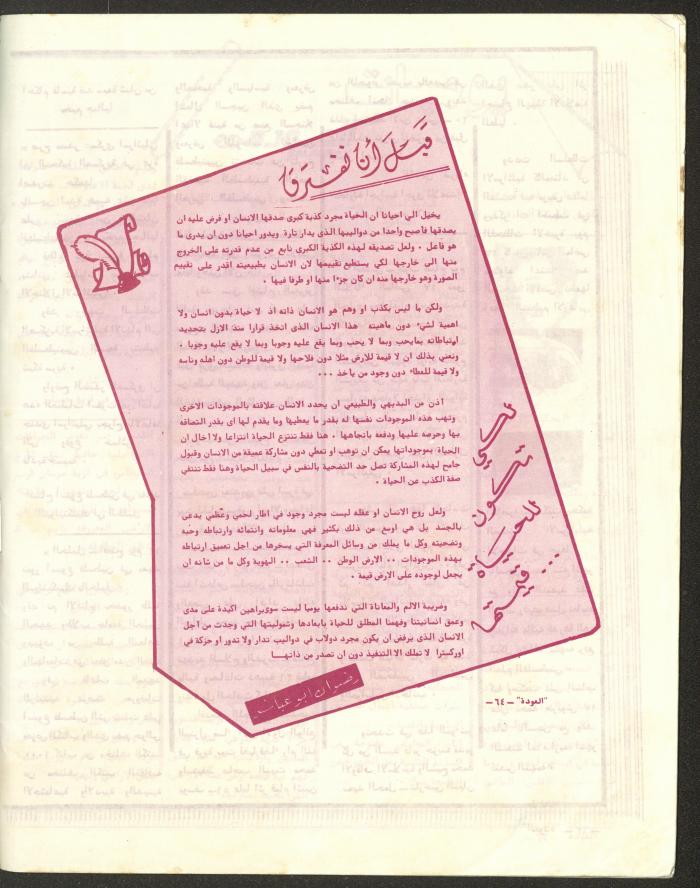 قَبلَ أن نفترق
يخيل الي احيانا ان الحياة مجرد كذبة كبرى صدقها الانسان او فرض عليه ان
يصدقها فأصبح واحدا من دواليبها الذى يدار تارة ويدور احيانا دون ان يدرى ما
هو فاعل . ولعل تصديقه لهذه الكذبة الكبرى نابع من عدم قدرته على الخروج
منها الى خارجها لكي يستطيع تقييمها لان الانسان بطبيعته اقدر على تقييم
الصورة وهو خارجها منه ان كان جزءا منها او طرفا فيها .
ولكن ما ليس بكذب او وهم هو الانسان ذاته اذ لا حياة بدون انسان ولا
اهمية لشيء دون ماهيته هذا الانسان الذى اتخذ قرارا منذ الازل بتجديد
ارتباطاته بمايحب وبما لا يحب وبما يقع عليه وجوبا وبما لا يقع عليه وجوبا .
ونعني بذلك ان لا قيمة للارض مثلا دون فلاحها ولا قيمة للوطن دون اهله وناسه
ولا قيمة للعطاء دون وجود من ياخذ ...
اذن من البديهي والطبيعي ان يحدد الانسان علاقته بالموجودات الاخرى
وتهب هذه الموجودات نفسها له بقدر ما يعطيها وما يقدم لها اى بقدر التصاقه
بها وحرصه عليها ودفعه باتجاهها . هنا فقط تنتزع الحياة انتزاعا ولا اخال ان
الحياة بموجوداتها يمكن ان توهب او تعطي دون مشاركة عميقة من الانسان وقبول
جامح لهذه المشاركة تصل حد التضحية بالنفس في سبيل الحياة وهنا فقط تنتفي
صفة الكذب عن الحياة .
ولعل روح الانسان او عقله ليست مجرد وجود في اطار لحمي وعظمي يدعى
بالجسد بل هي اوسع من ذلك بكثير فهي معلوماته وانتمائه وارتباطه وحبه
وتضحيته وكل ما يملك من وسائل المعرفة التي يسخرها من اجل تعميق ارتباطه
بهذه الموجودات .. الارض الوطن .. الشعب .. الهوية وكل ما من شانه ان
يجعل لوجوده على الارض قيمة .
وضريبة الالم والمعاناة التي ندفعها يوميا ليست سوى براهين اكيدة على مدى
وعمق انسانيتنا وفهمنا المطلق للحياة بابعادها وشموليتها التي وجدت من اجل
الانسان الذى يرفض ان يكون مجرد دولاب في دواليب تدار ولا تدور او حركة في
اوركسترا لا تملك الا التنفيذ دون ان تصدر من ذاتها
رضوان ابو عياش
لكي تكون للحياة قيمة ...
"العودة" – ٦٤ –